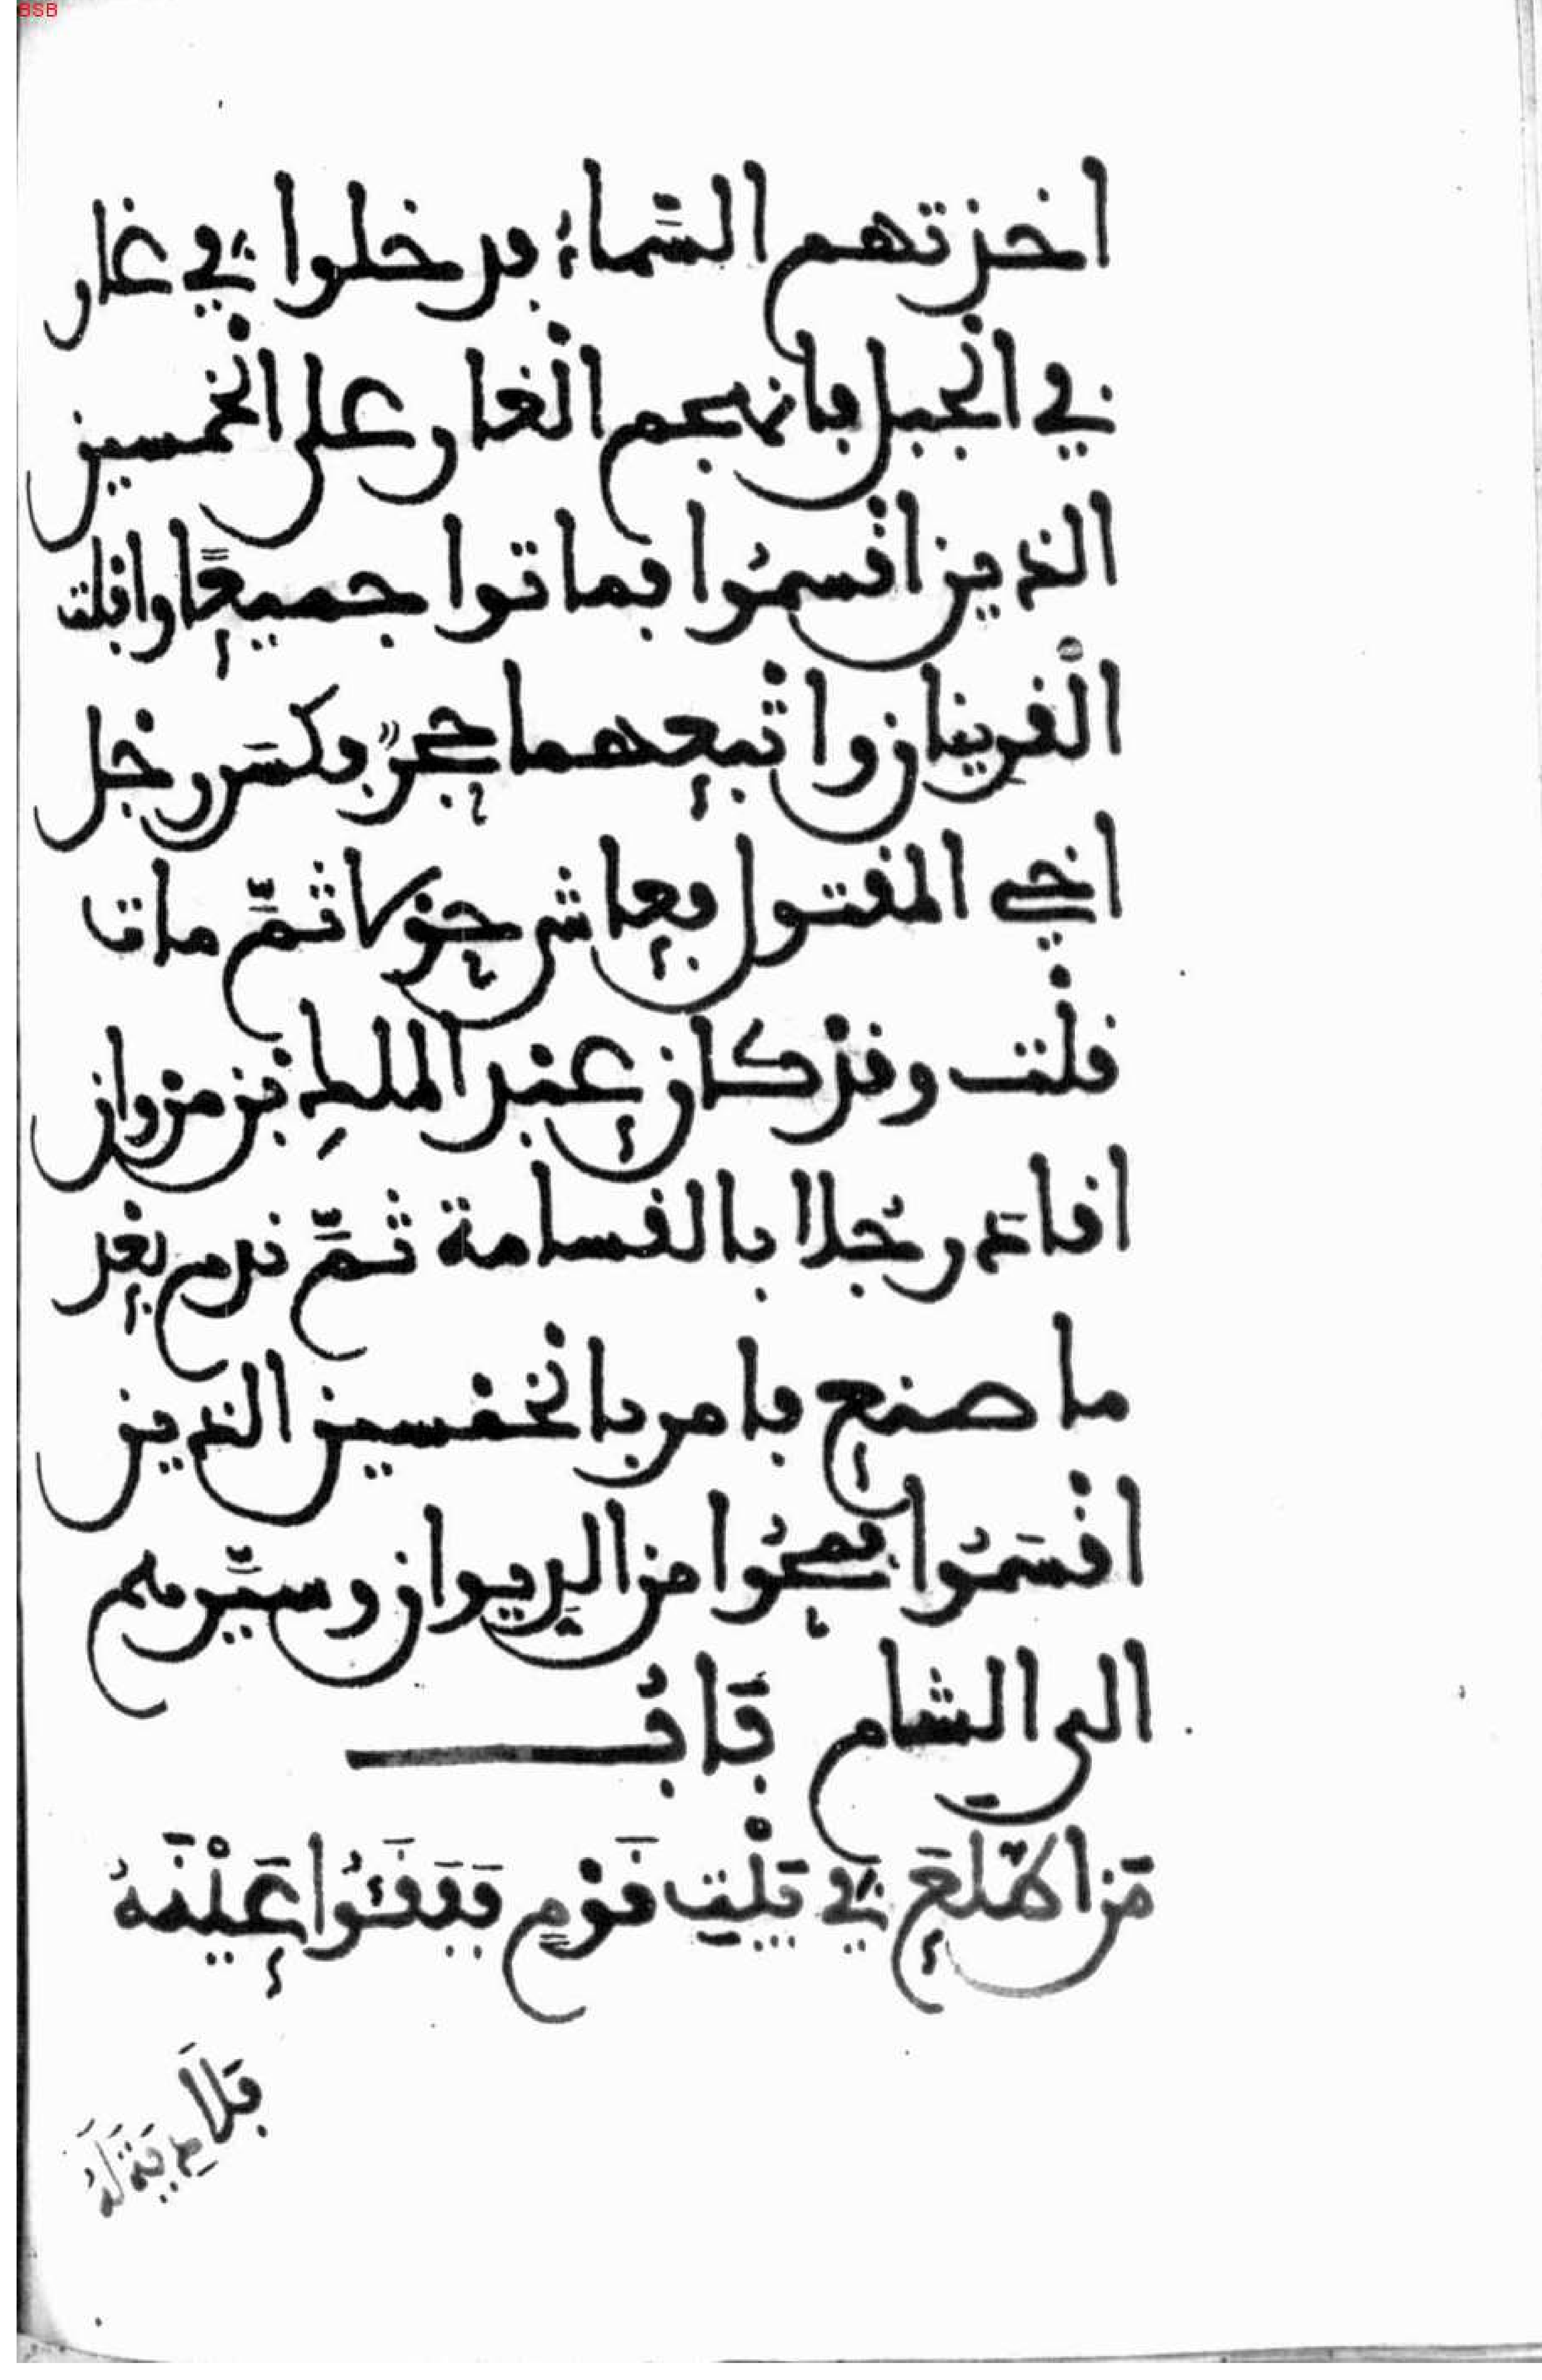 BSB
اخذتهم السَّماء فدخلوا في غار
في الْجبل فانهجم الْغار على الْخمسين
الذين اقْسمُوا فماتوا جميعًا وافلت
الْقرينان واتْبعهما حجرٌ فكسَر رجْل
اخي المقتول فعاش حولا ثمَّ مات
قلْت وقدْ كان عبد الملكِ بن مروان
اقادَ رجُلا بالقسامة ثمَّ ندم بعْد
ما صنع فامر بالْخمسين الذين
اقْسَمُوا فمحُوا من الديوان وسيَّرهم
الى الشام بَابُ
مَن اطّلَعَ في بَيْتِ قَوْمٍ فَفَقَئُوا عَيْنَهُ
فَلاَ دِيَةَ لَهُ